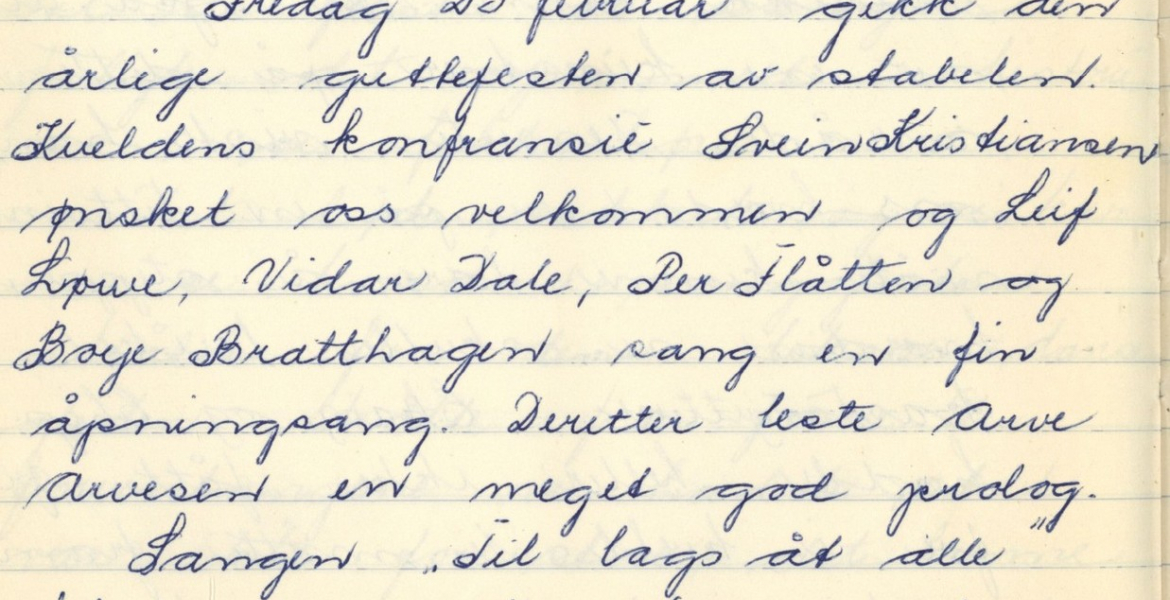 Fredag 25 februar gikk den
årlige guttefesten av stabelen.
Kveldens konfransiè Svein Kristiansen
ønsket oss velkommen og Leif
Løwe, Vidar Dale, Per Flåtten og
Børje Bratthagen sang en fin
åpningsang. Deretter leste Arve
Arvesen en meget god prolog.
Sangen „Til lags åt alle"